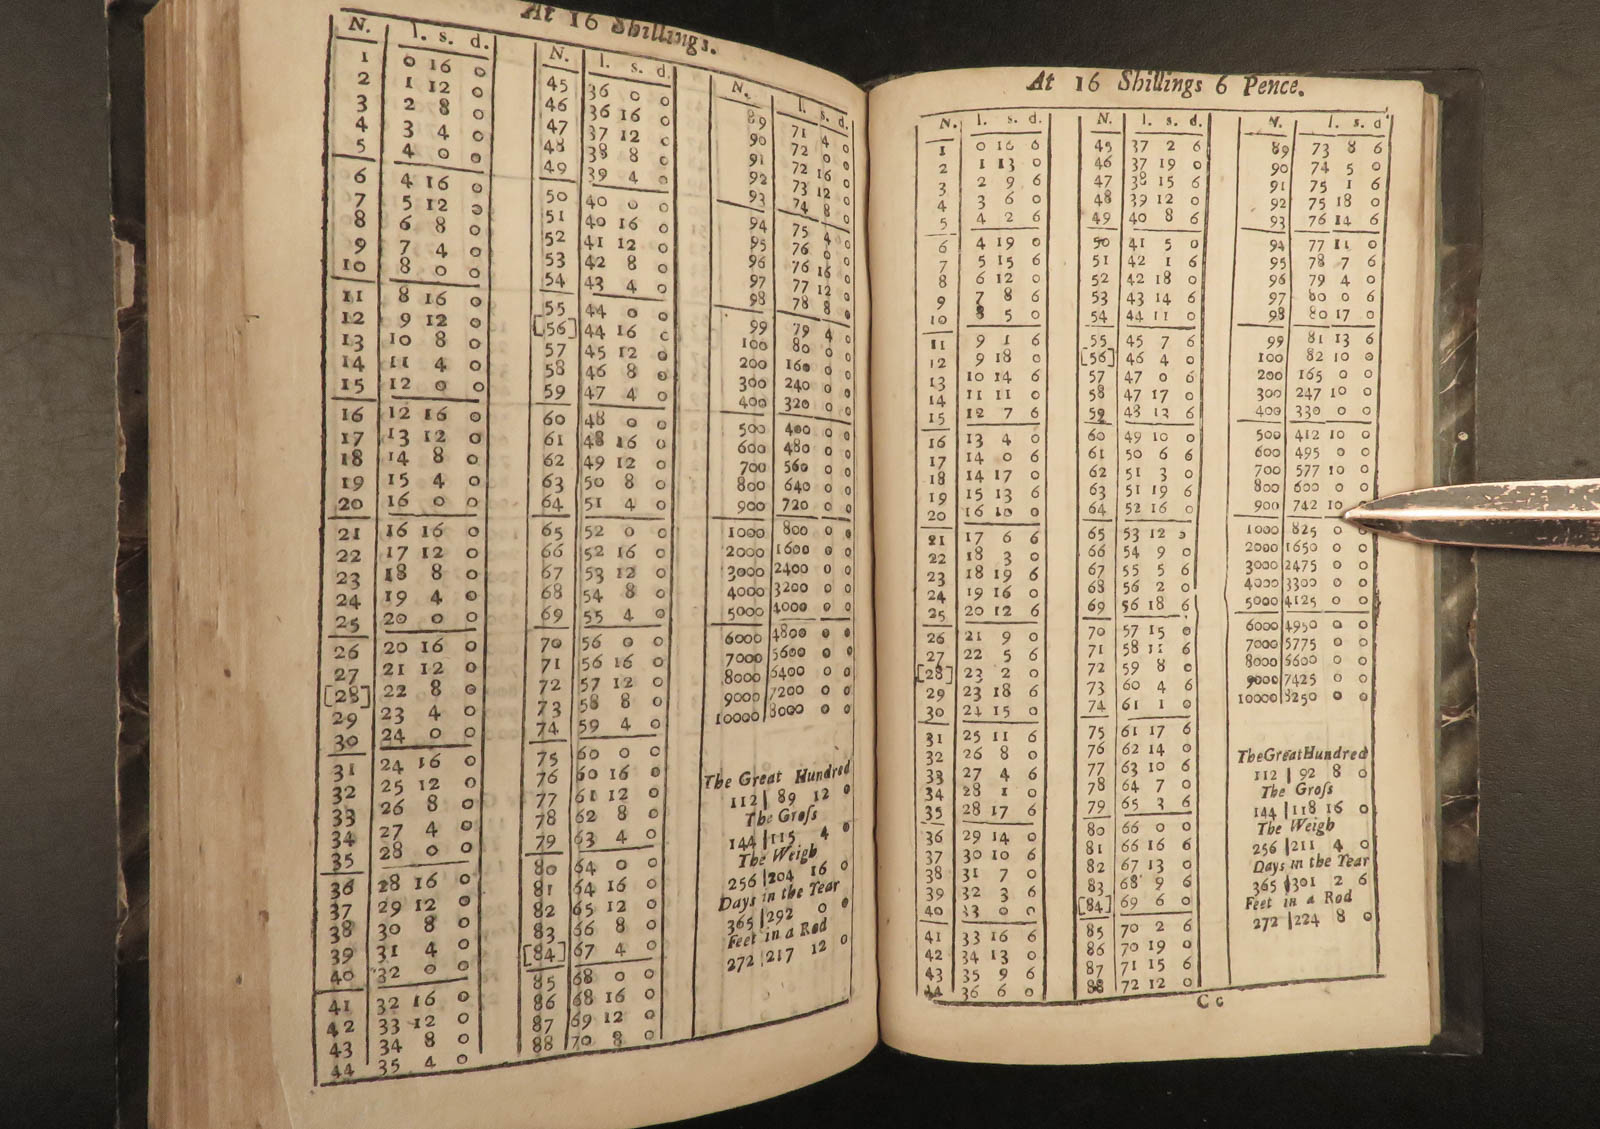 At 16 Shillings.
N. l. s. d.
1 0 16 0
2 1 12 0
3 2 8 0
4 3 4 0
5 4 0 0
6 4 16 0
7 5 12 0
8 6 8 0
9 7 4 0
10 8 0 0
11 8 16 0
12 9 12 0
13 10 8 0
14 11 4 0
15 12 0 0
16 12 16 0
17 13 12 0
18 14 8 0
19 15 4 0
20 16 0 0
21 16 16 0
22 17 12 0
23 18 8 0
24 19 4 0
25 20 0 0
26 20 16 0
27 21 12 0
[28] 22 8 0
29 23 4 0
30 24 0 0
31 24 16 0
32 25 12 0
33 26 8 0
34 27 4 0
35 28 0 0
36 28 16 0
37 29 12 0
38 30 8 0
39 31 4 0
40 32 0 0
41 32 16 0
42 33 12 0
43 34 8 0
44 35 4 0
N. l. s. d.
45 36 0 0
46 36 16 0
47 37 12 c
48 38 8 0
49 39 4 0
50 40 0 0
51 40 16 0
52 41 12 0
53 42 8 0
54 43 4 0
55 44 0 0
[56] 44 16 c
57 45 12 0
58 46 8 0
59 47 4 0
60 48 0 0
61 48 16 0
62 49 12 0
63 50 8 0
64 51 4 0
65 52 0 0
66 52 16 0
67 53 12 0
68 54 8 0
69 55 4 0
70 56 0 0
71 56 16 0
72 57 12 0
73 58 8 0
74 59 4 0
75 60 0 0
76 60 16 0
77 61 12 0
78 62 8 0
79 63 4 0
80 64 0 0
81 64 16 0
82 65 12 0
83 66 8 0
[84] 67 4 0
85 68 0 0
86 68 16 0
87 69 12 0
88 70 8 0
N. l. s. d.
89 71 4 0
90 72 0 0
91 72 16 0
92 73 12 0
93 74 8 0
94 75 4 0
95 76 0 0
96 76 16 0
97 77 12 0
98 78 8 0
99 79 4 0
100 80 0 0
200 160 0 0
300 240 0 0
400 320 0 0
500 400 0 0
600 480 0 0
700 560 0 0
800 640 0 0
900 720 0 0
1000 800 0 0
2000 1600 0 0
3000 2400 0 0
4000 3200 0 0
5000 4000 0 0
6000 4800 0 0
7000 5600 0 0
8000 6400 0 0
9000 7200 0 0
10000 8000 0 0
The Great Hundred
112 89 12 0
The Groſs
144 115 4 0
The Weigh
256 204 16 0
Days in the Year
365 292 0 0
Feet in a Rod
272 217 12 0
At 16 Shillings 6 Pence.
N. l. s. d.
1 0 16 6
2 1 13 0
3 2 9 6
4 3 6 0
5 4 2 6
6 4 19 0
7 5 15 6
8 6 12 0
9 7 8 6
10 8 5 0
11 9 1 6
12 9 18 0
13 10 14 6
14 11 11 0
15 12 7 6
16 13 4 0
17 14 0 6
18 14 17 0
19 15 13 6
20 16 10 0
21 17 6 6
22 18 3 0
23 18 19 6
24 19 16 0
25 20 12 6
26 21 9 0
27 22 5 6
[28] 23 2 0
29 23 18 6
30 24 15 0
31 25 11 6
32 26 8 0
33 27 4 6
34 28 1 0
35 28 17 6
36 29 14 0
37 30 10 6
38 31 7 0
39 32 3 6
40 33 0 0
41 33 16 6
42 34 13 0
43 35 9 6
44 36 6 0
N. l. s. d.
45 37 2 6
46 37 19 0
47 38 15 6
48 39 12 0
49 40 8 6
50 41 5 0
51 42 1 6
52 42 18 0
53 43 14 6
54 44 11 0
55 45 7 6
[56] 46 4 0
57 47 0 6
58 47 17 0
59 48 13 6
60 49 10 0
61 50 6 6
62 51 3 0
63 51 19 6
64 52 16 0
65 53 12
66 54 9 0
67 55 5 6
68 56 2 0
69 56 18 6
70 57 15 0
71 58 11 6
72 59 8 0
73 60 4 6
74 61 1 0
75 61 17 6
76 62 14 0
77 63 10 6
78 64 7 0
79 65 3 6
80 66 0 0
81 66 16 6
82 67 13 0
83 68 9 6
[84] 69 6 0
85 70 2 6
86 70 19 0
87 71 15 6
88 72 12 0
N. l. s. d
89 73 8 6
90 74 5 0
91 75 1 6
92 75 18 0
93 76 14 6
94 77 11 0
95 78 7 6
96 79 4 0
97 80 0 6
98 80 17 0
99 81 13 6
100 82 10 0
200 165 0 0
300 247 10 0
400 330 0 0
500 412 10 0
600 495 0 0
700 577 10 0
800 600 0 0
900 742 10
1000 825 0
2000 1650 0 0
3000 2475 0 0
4000 3300 0 0
5000 4125 0 0
6000 4950 0 0
7000 5775 0 0
8000 6600 0 0
9000 7425 0 0
10000 8250 0 0
The Great Hundred
112 92 8 0
The Groſs
144 118 16 0
The Weigh
256 211 4 0
Days in the Year
365 301 2 6
Feet in a Rod
272 224 8 0
C c